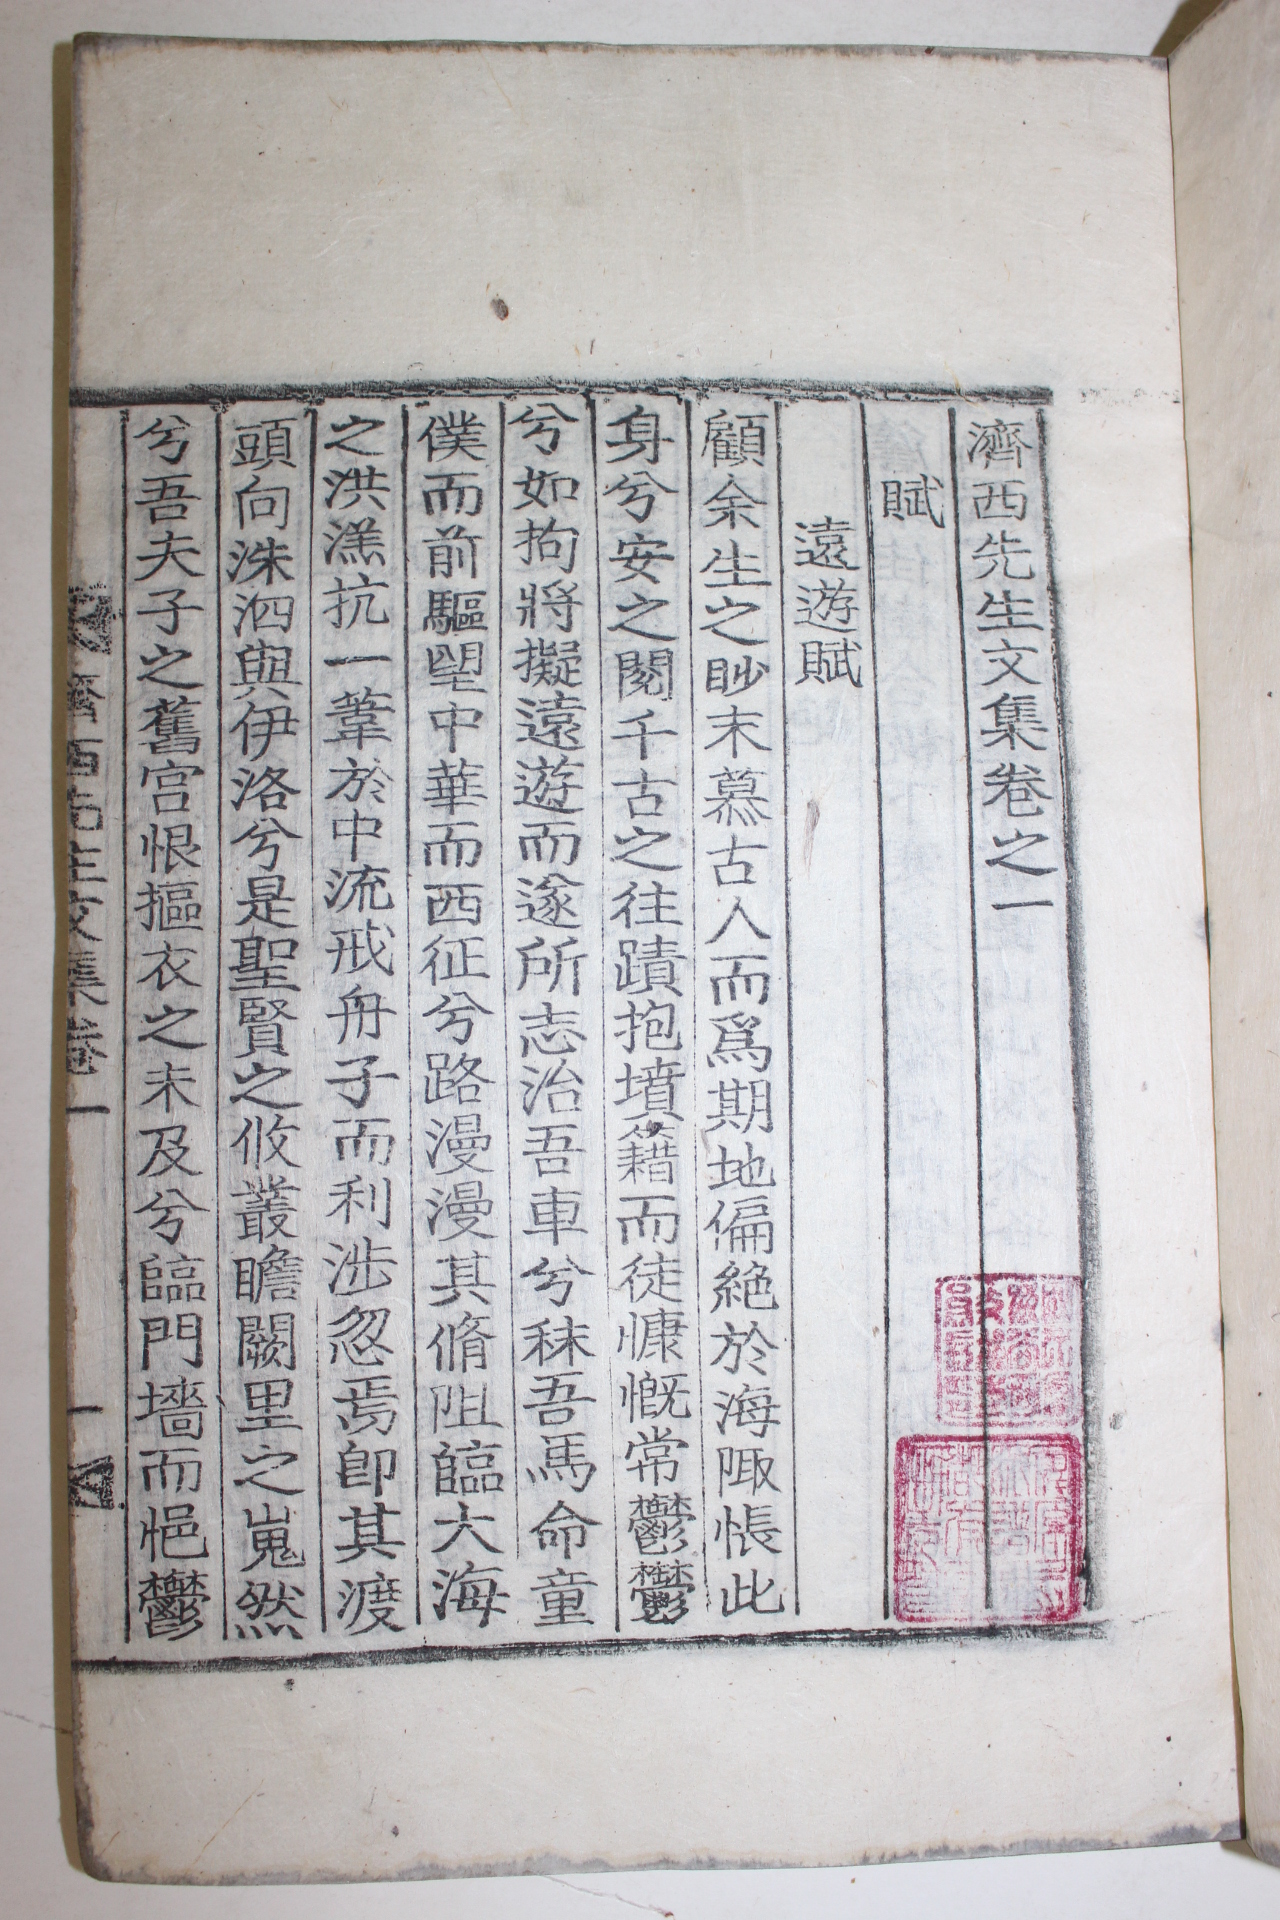 濟西先生文集卷之一
賦
遠遊賦
顧余生之眇末慕古人而爲期地偏絶於海陬悵此
身兮安之閱千古之往蹟抱墳籍而徒慷慨常鬱鬱
兮如拘將擬遠遊而遂所志治吾車兮秣吾馬命童
僕而前驅望中華而西征兮路漫漫其脩阻臨大海
之洪㵝抗一葦於中流戒舟子而利涉忽焉卽其渡
頭向洙泗與伊洛兮是聖賢之攸叢瞻闕里之嵬然
兮吾夫子之舊宮恨摳衣之未及兮臨門墻而悒鬱
濟西先生文集卷一 一